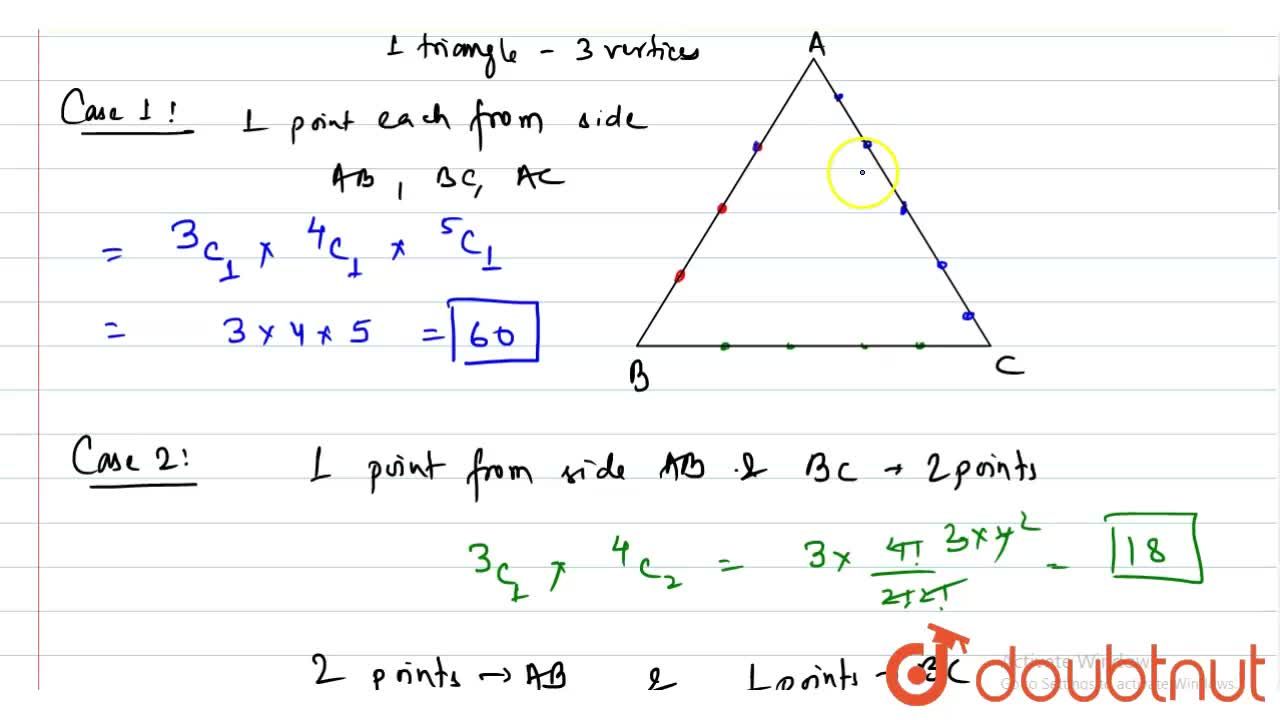 1 triangle - 3 vertices
Case 1: 1 point each from side
AB, BC, AC
= ³C₁ × ⁴C₁ × ⁵C₁
= 3 × 4 × 5 = 60
A
B
C
Case 2: 1 point from side AB & BC → 2 points
³C₁ × ⁴C₂ = 3 × 4! 3×4² = 18
2! 2!
2 points → AB & 1 points → BC
doubtnut
Activate Windows
Go to Settings to activate Windows.